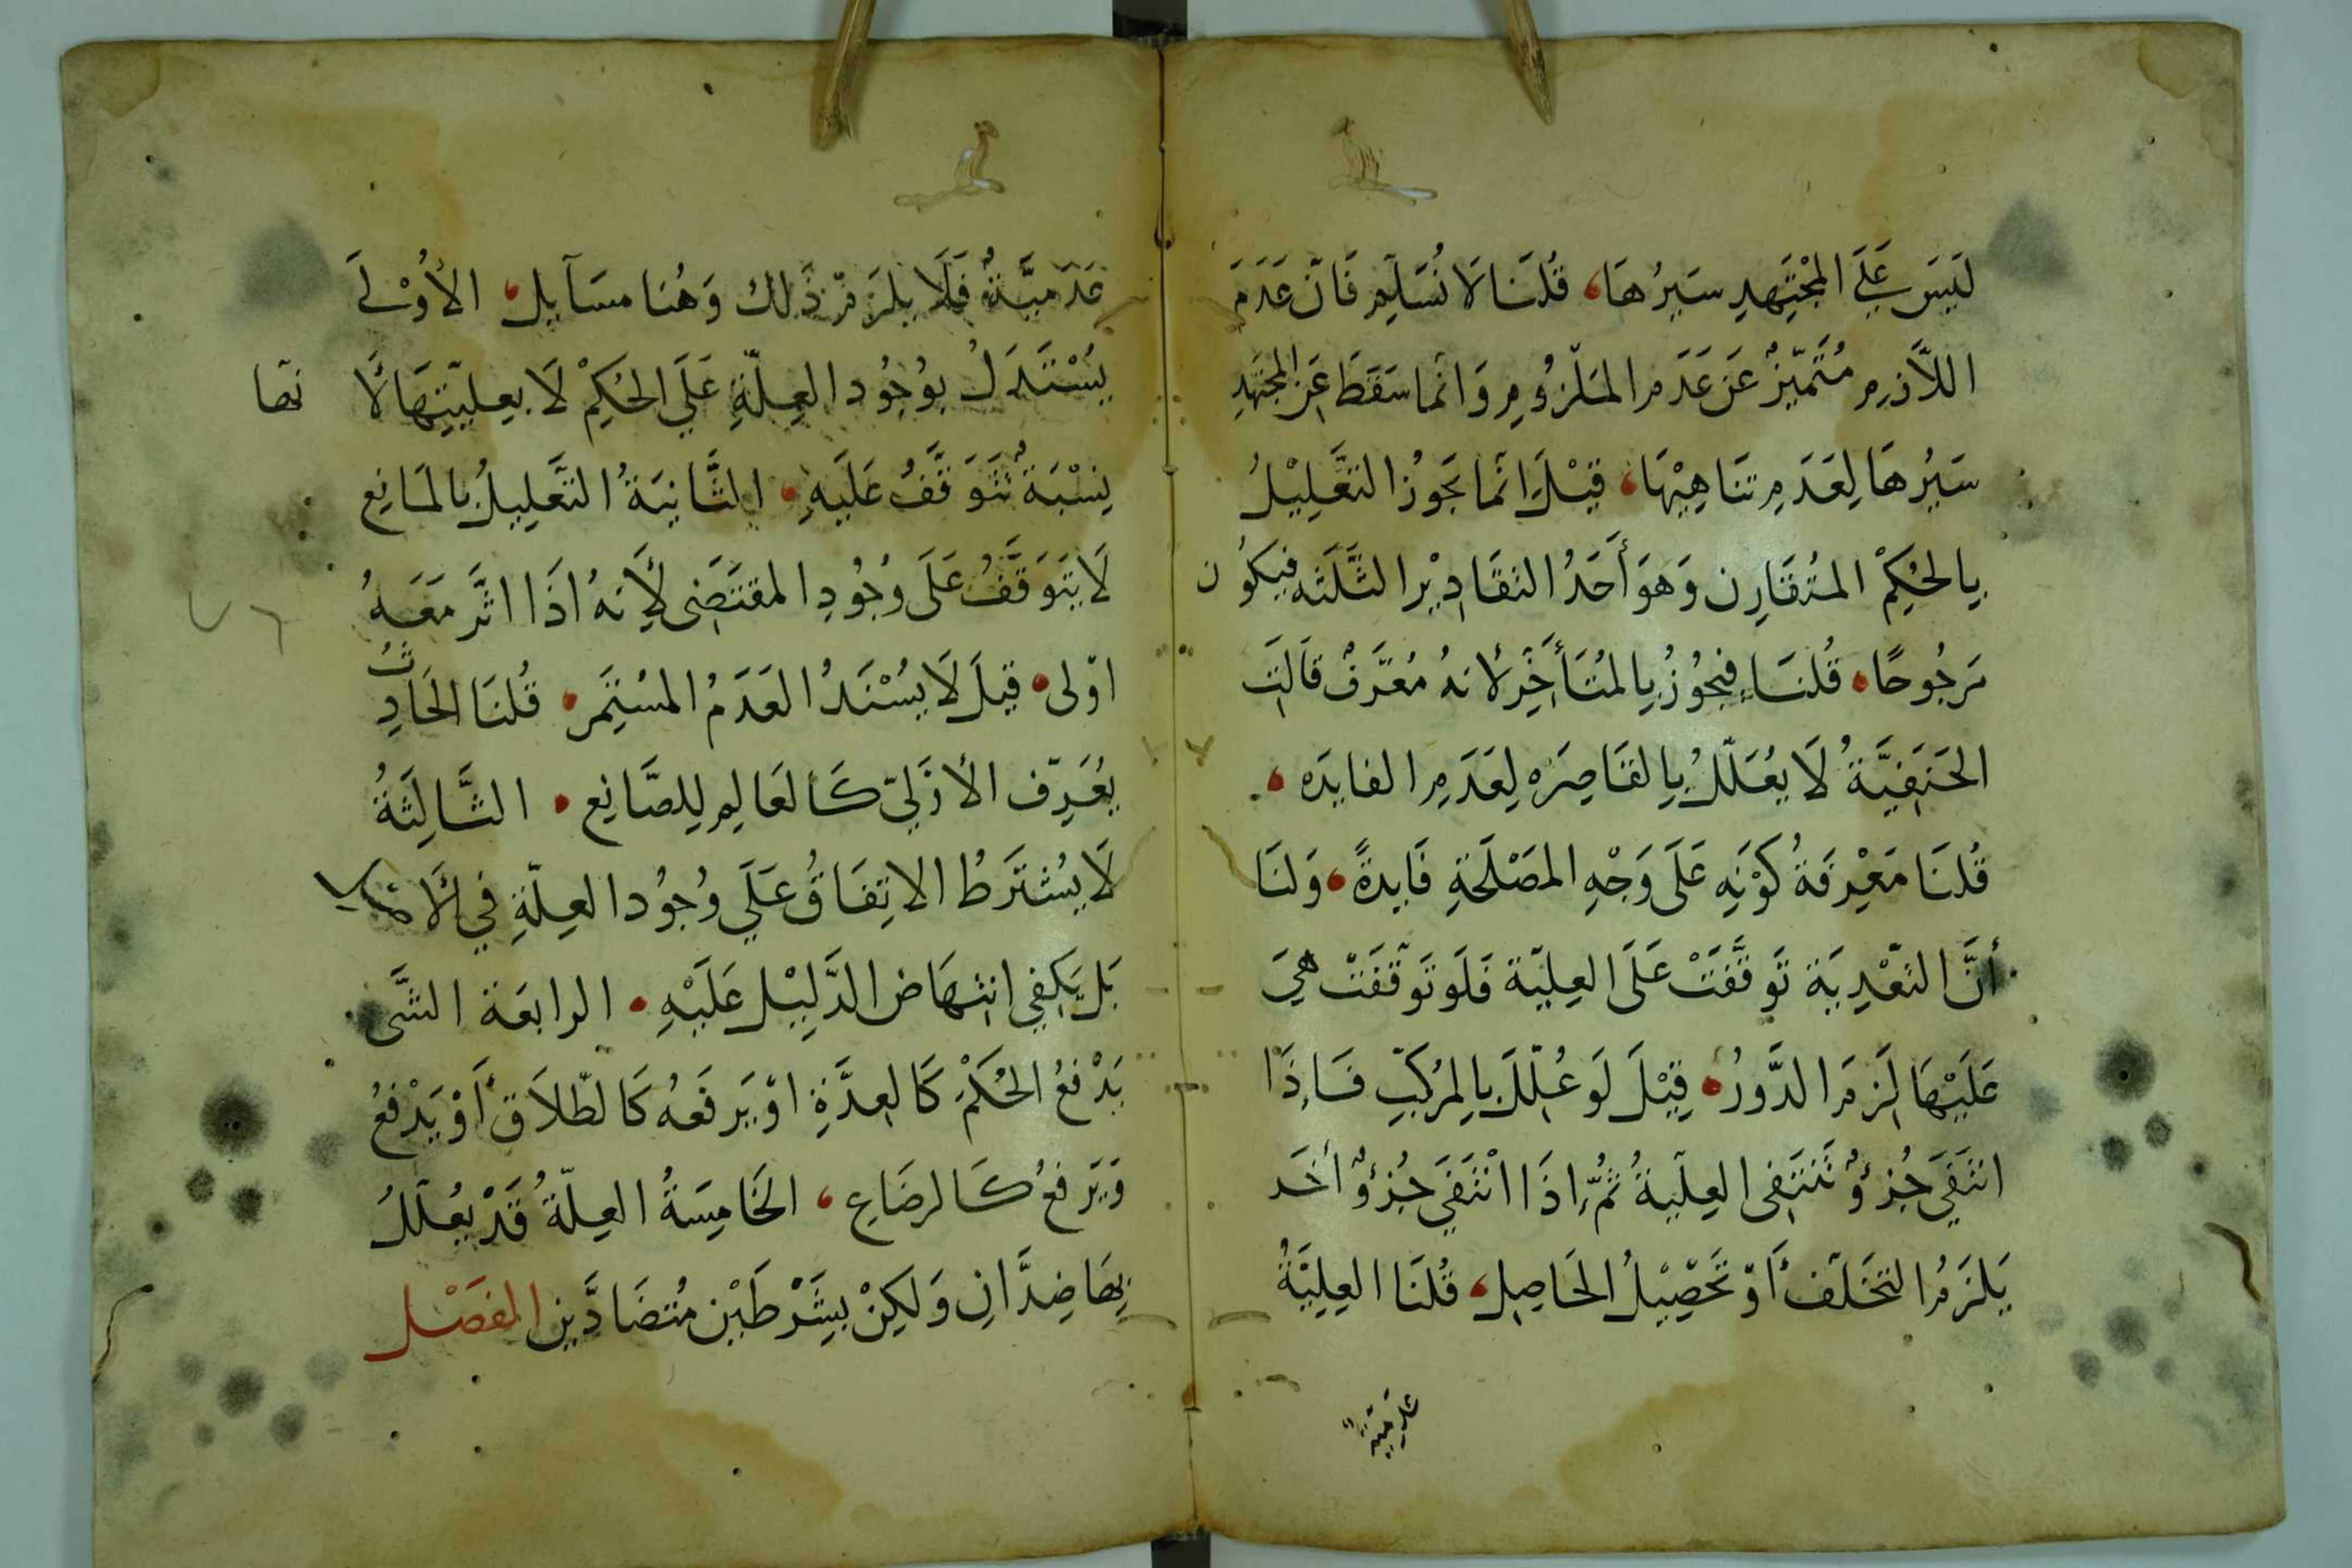 لَيسَ عَلَى المجْتَهِدِ سَبرُهَا، قُلنَا لَا نُسَلِّم فَانّ عَدَمَ
اللاَّزِمِ مُتَمَيِّزٌ عَن عَدَمِ المَلزُومِ وَانما سَقَطَ عَنِ المجتَهِدِ
سَبرُهَا لِعَدَمِ تنَاهِيْهَا، قيْلَ انّما يجَوزُ التعَّلِيْلُ
بالحُكِمْ المتُقَارِن وَهوَ أَحَدُ التقَادِيْر الثَّلثَه فيَكوُن
مَرجُوحًا، قُلنَا وَيجُوزُ بالمتُأَخِّرِ لأنهُ مُعَرّفٌ قالَت
الحَنَفِيَّةُ لَا يُعَلّلُ بِالقَاصِرَه لِعَدَمِ الفايدَه،
قُلنَا مَعْرِفَةُ كَوْنِهِ عَلَى وَجْهِ المصَلَحَةِ فَايدةً، وَلنَا
أنَّ التعّدِيَة تَوقَّفَتْ عَلَى العِلِيّة فَلَو تَوقّفَتْ هيَ
عَلَيْهَا لَزِمَ الدَّورُ، قِيْلَ لَو عُلِّلَ بالمرُكّبِ فَاِذَا
انتَفَيَ جُزءٌ تَنتَفِى العِلّيةُ ثُمّ اِذَا انْتَفَيَ جُزءٌ أخَر
يَلزَمُ التخَلّف أوْ تحَصِيْلُ الحَاصِلِ، قُلنَا العِلِيَّةُ
عَدمِيّةٌ
عَدَميَّةٌ فَلَا يلزَمُ ذَلك وَهُنا مسَآيل، الأوُلَى
يُسْتَدَلُ بوُجُودِ العِلّةِ عَلَى الحُكمْ لَا بعِلّيتِهَا لأ نهّا
نِسْبَةٌ تتَوَقَّفُ عَلَيهِ، الثَّانيَةُ التَّعلِيلُ بالمَانِع
لَا يَتَوَقَّفُ عَلَى وُجُودِ المقتَضِى لأَنهُ اذَا اثَّر مَعَهُ
اوّلى، قِيلَ لَا يُسْنَدُ العَدَمُ المسْتَمِر، قُلنَا الحَادِثُ
يُعَرِّف الأَزَليّ كَالعَالِمِ لِلصَّانِع، الثَّالِثَةُ
لَا يُشتَرطُ الاتِفَاقُ عَلَى وُجوُدِ العِلّةِ في الأصل
بَل يَكفِي انتِهَاضُ الدَّلِيْل عَلَيْهِ، الرابعَة الشَّى
يَدْفعُ الحُكمْ كَالعِدَّةِ اوْ يَرفَعهُ كَالطّلاَق أَوْ يَدْفعُ
وَيَرفعُ كَالرضَاعِ، الخَامِسَةُ العِلّةُ قَدْ يُعلّلُ
بِهَا ضِدَّانِ وَلكِنْ بشَرْطَيْنِ مُتضَادَّينِ الفصَل